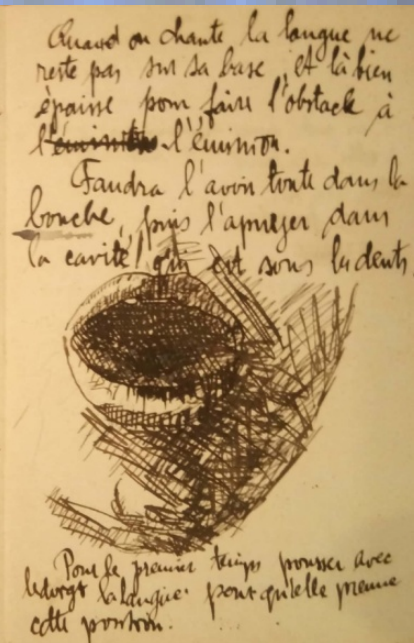 Quand on chante la langue ne
reste pas sur sa base, et là bien
épaisse pour faire l'obstacle à
l'émission l'émission.
Faudra l'avoir toute dans la
bouche, puis l'appuyer dans
la cavité qui est sous les dents
Pour le premier temps pousser avec
le doigt la langue pour qu'elle prenne
cette position.